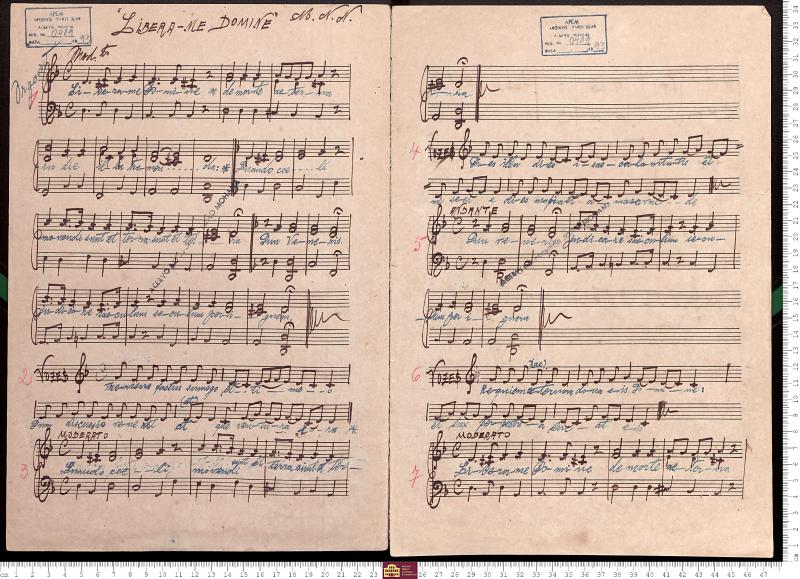 APEM
ARQUIVO PARTICULAR
ACERVO MUSICAL
REG. Nº 0419
DATA 93
"LIBERA-ME DOMINE" N. N.
Mod. to
Orgão
1
Li-bera-me Do-mi-ne * de morte ae-ter-na
in die il-la tremen......da: * Quando coe......li
movendi sunt et terra sunt et ter ra Dum veneris
Ju-di-ca-re sae-cu-lum sae-cu-lum per i-gnem
2 VOZES
Tremens factus sum ego et ti me o
Dum discussio venerit at que ventura i-ra *
3 MODERATO
Quando coe-li movendi sunt et terra sunt et ter-
APEM
ARQUIVO PARTICULAR
ACERVO MUSICAL
REG. Nº 0419
DATA 93
ra
4 VOZES
Di-es illa di-es i-rae ca-la-mitatis et
mi-se-ri-ae di-es magna et a-mara val-de
ANDANTE
5
Dum ve-ne-ris Ju-di-ca-re sae-cu-lum sae-cu-
lum per i-gnem
6 VOZES
(ae)
Requiem aeternam dona e-is Do-mi-ne:
et lux perpetu-a luce at e-is
MODERATO
7
Li-be-ra-me Do-mi-ne de morte ae-ter-na